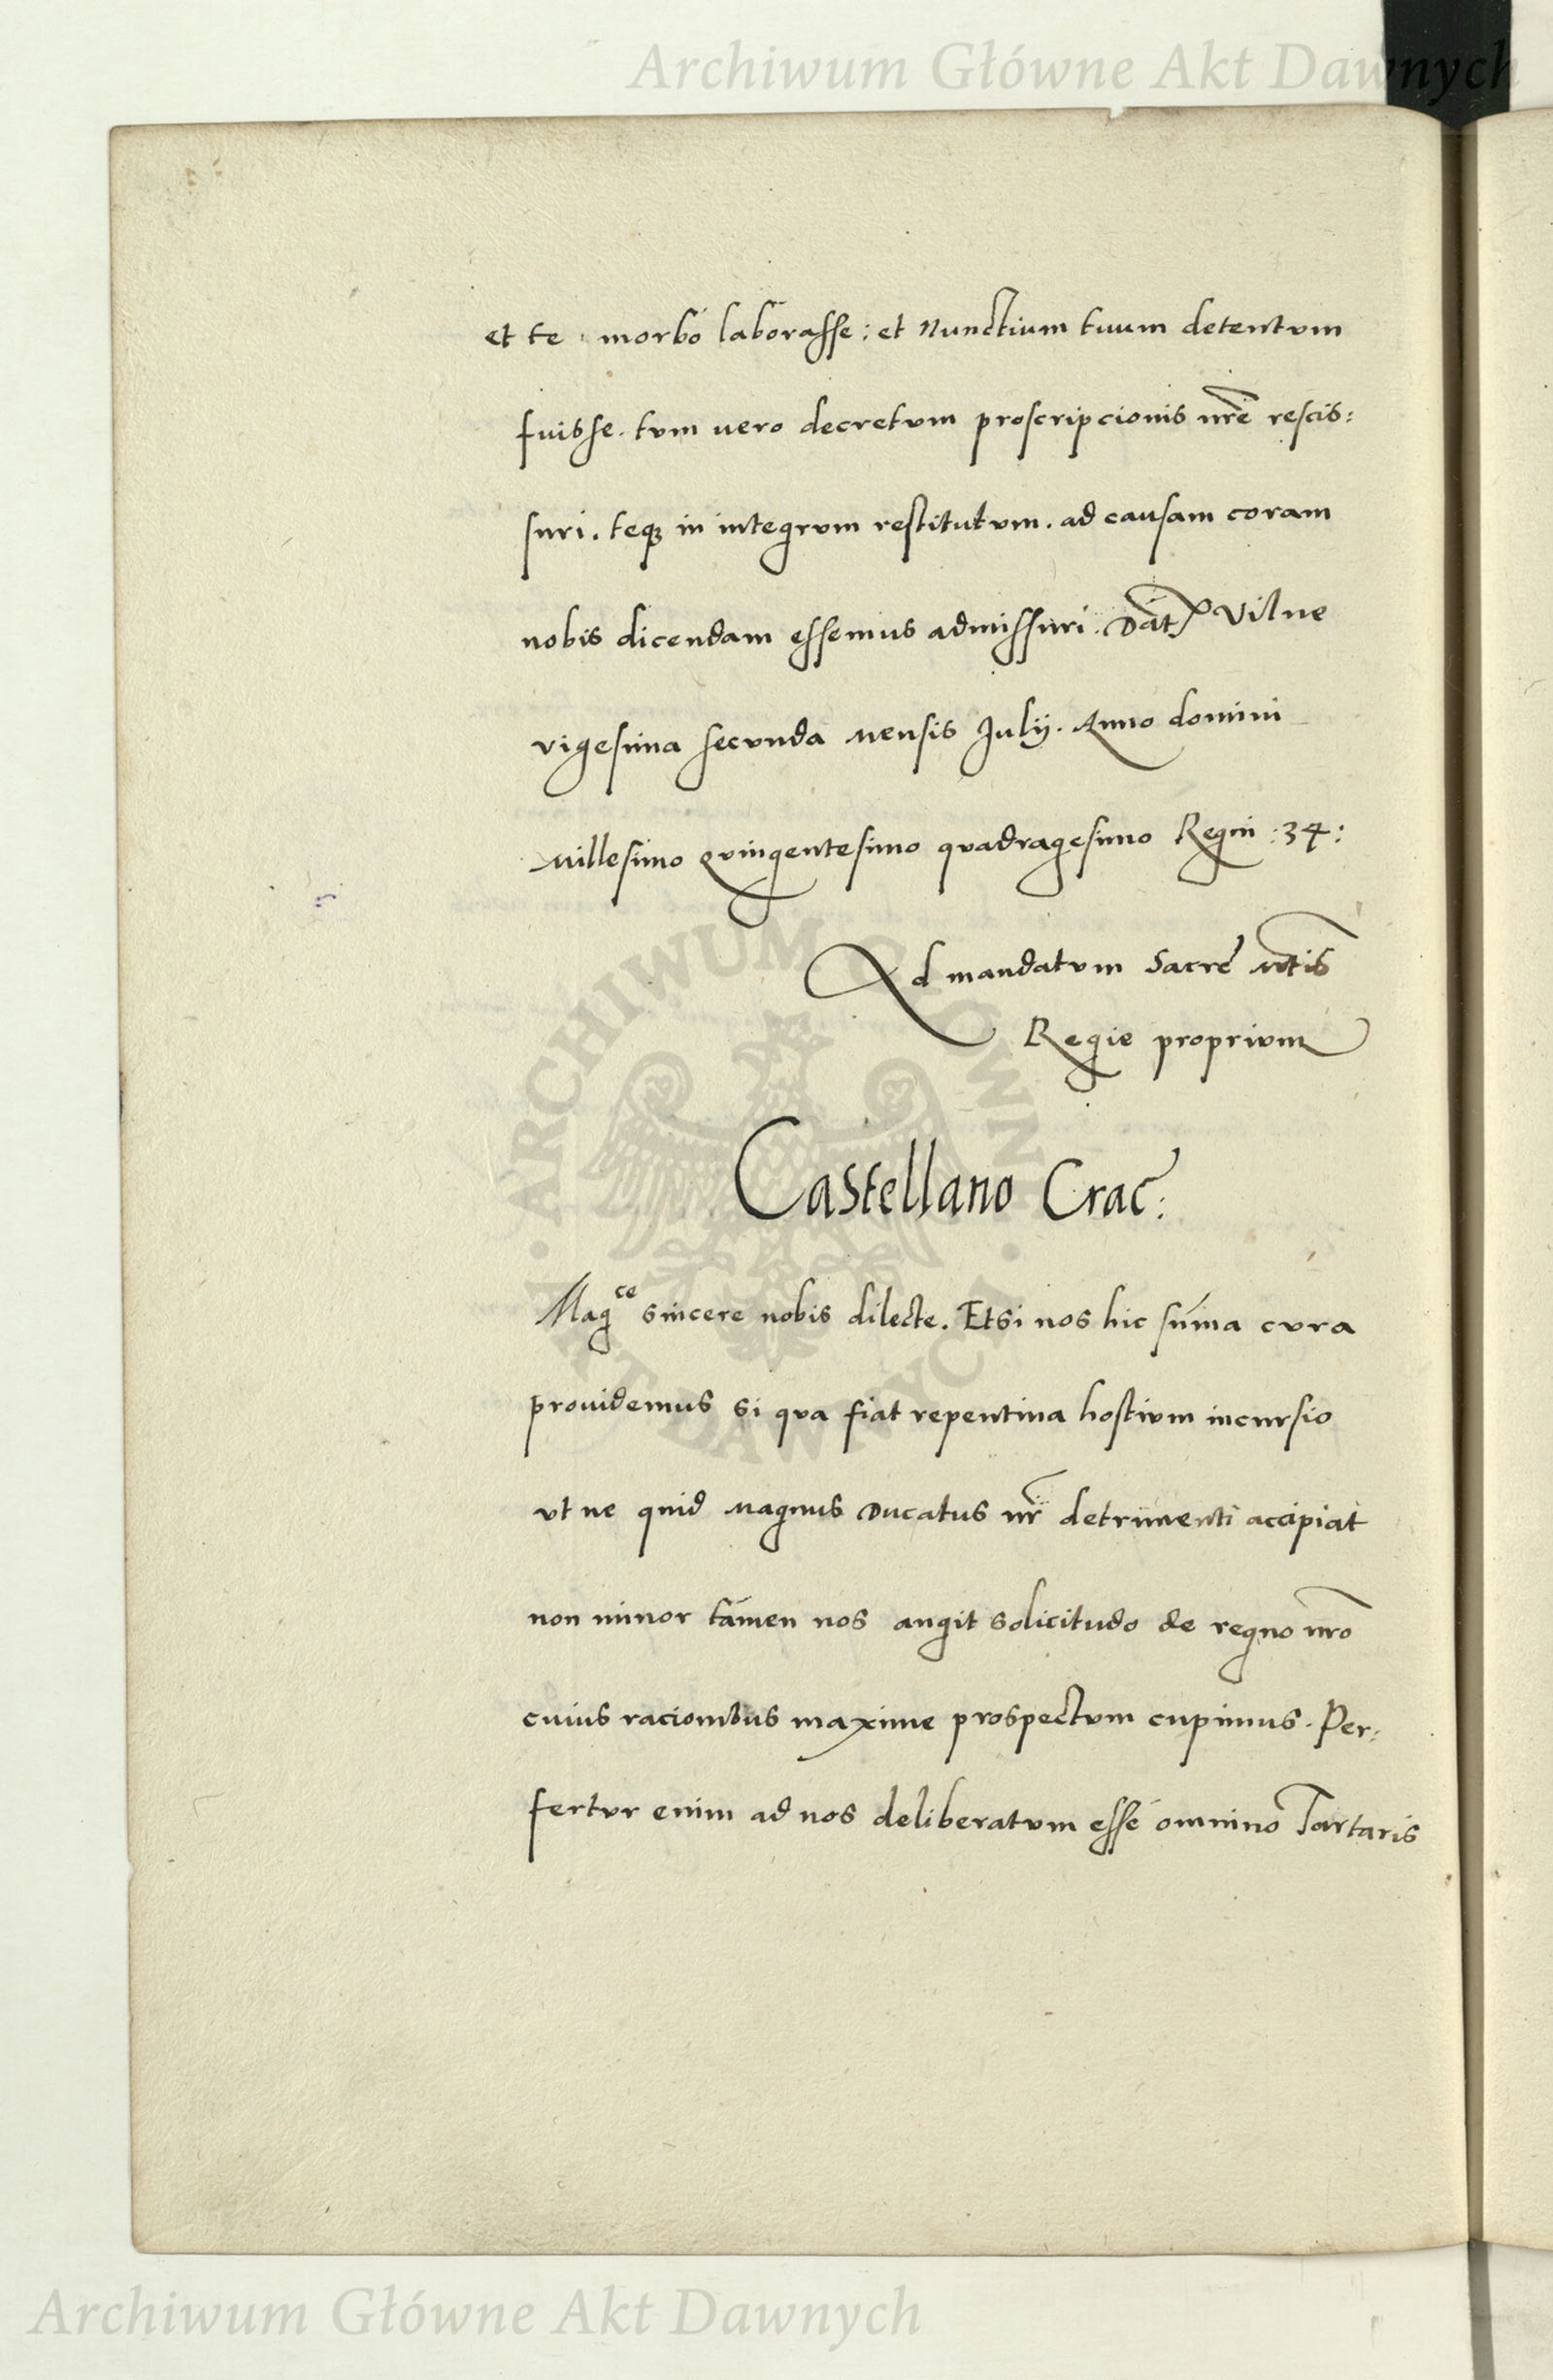 Archiwum Główne Akt Dawnych
et te morbo laborasse: et Nunctium tuum detentvm
fuisse. tvm uero decretvm proscripcionis nr̄e rescis:
suri. teqȝ in integrvm restitutvm. ad causam coram
nobis dicendam essemus admissuri. Dat Vilne
vigesima secvnda Mensis Julij. Anno domini
Millesimo qvingentesimo qvadragesimo Regni :34:
Ad mandatvm Sacre Mtis
Regie proprivm
Castellano Crac:
Magce sincere nobis dilecte. Etsi nos hic sum̄a cvra
prouidemus si qva fiat repentina hostivm incursio
vt ne quid Magnus Ducatus nr̄ detrimenti accipiat
non minor tamen nos angit solicitudo de regno nr̄o
cuius racionibus maxime prospectvm cupimus. Per:
fertvr enim ad nos deliberatvm esse omnino Tartaris
ARCHIWUM GŁÓWNE AKT DAWNYCH
Archiwum Główne Akt Dawnych